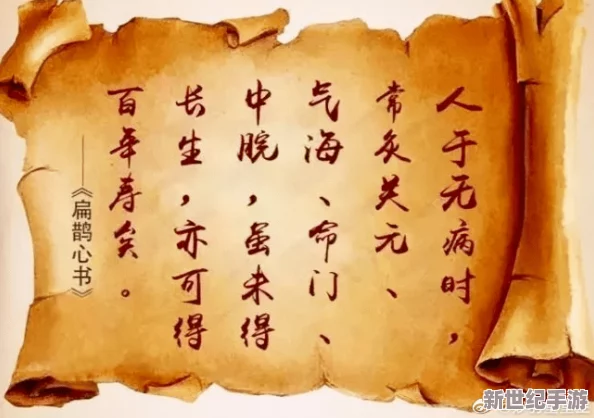 人于无病时，
常灸关元、
气海、命门、
中脘，虽未得
长生，亦可得
百年寿矣。
——《扁鹊心书》
新世纪手游